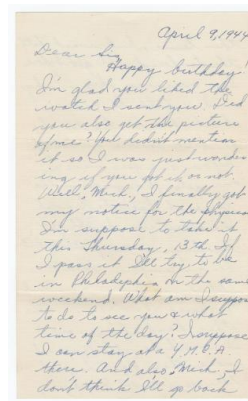 April 9, 1944
Dear Sis,
Happy birthday!
I'm glad you liked the
watch I sent you. Did
you also get the picture
of me? You didn't mention
it so I was just wonder-
ing if you got it or not.
Well, I finally got
my notice for the physical
I'm suppose to take it
this Thursday, 13th. If
I pass it I'll try to be
in Philadelphia on the same
weekend. What am I suppose
to do to see you & what
time of the day? I suppose
I can stay at a Y.M.C.A
there. And also I
don't think I'll go back